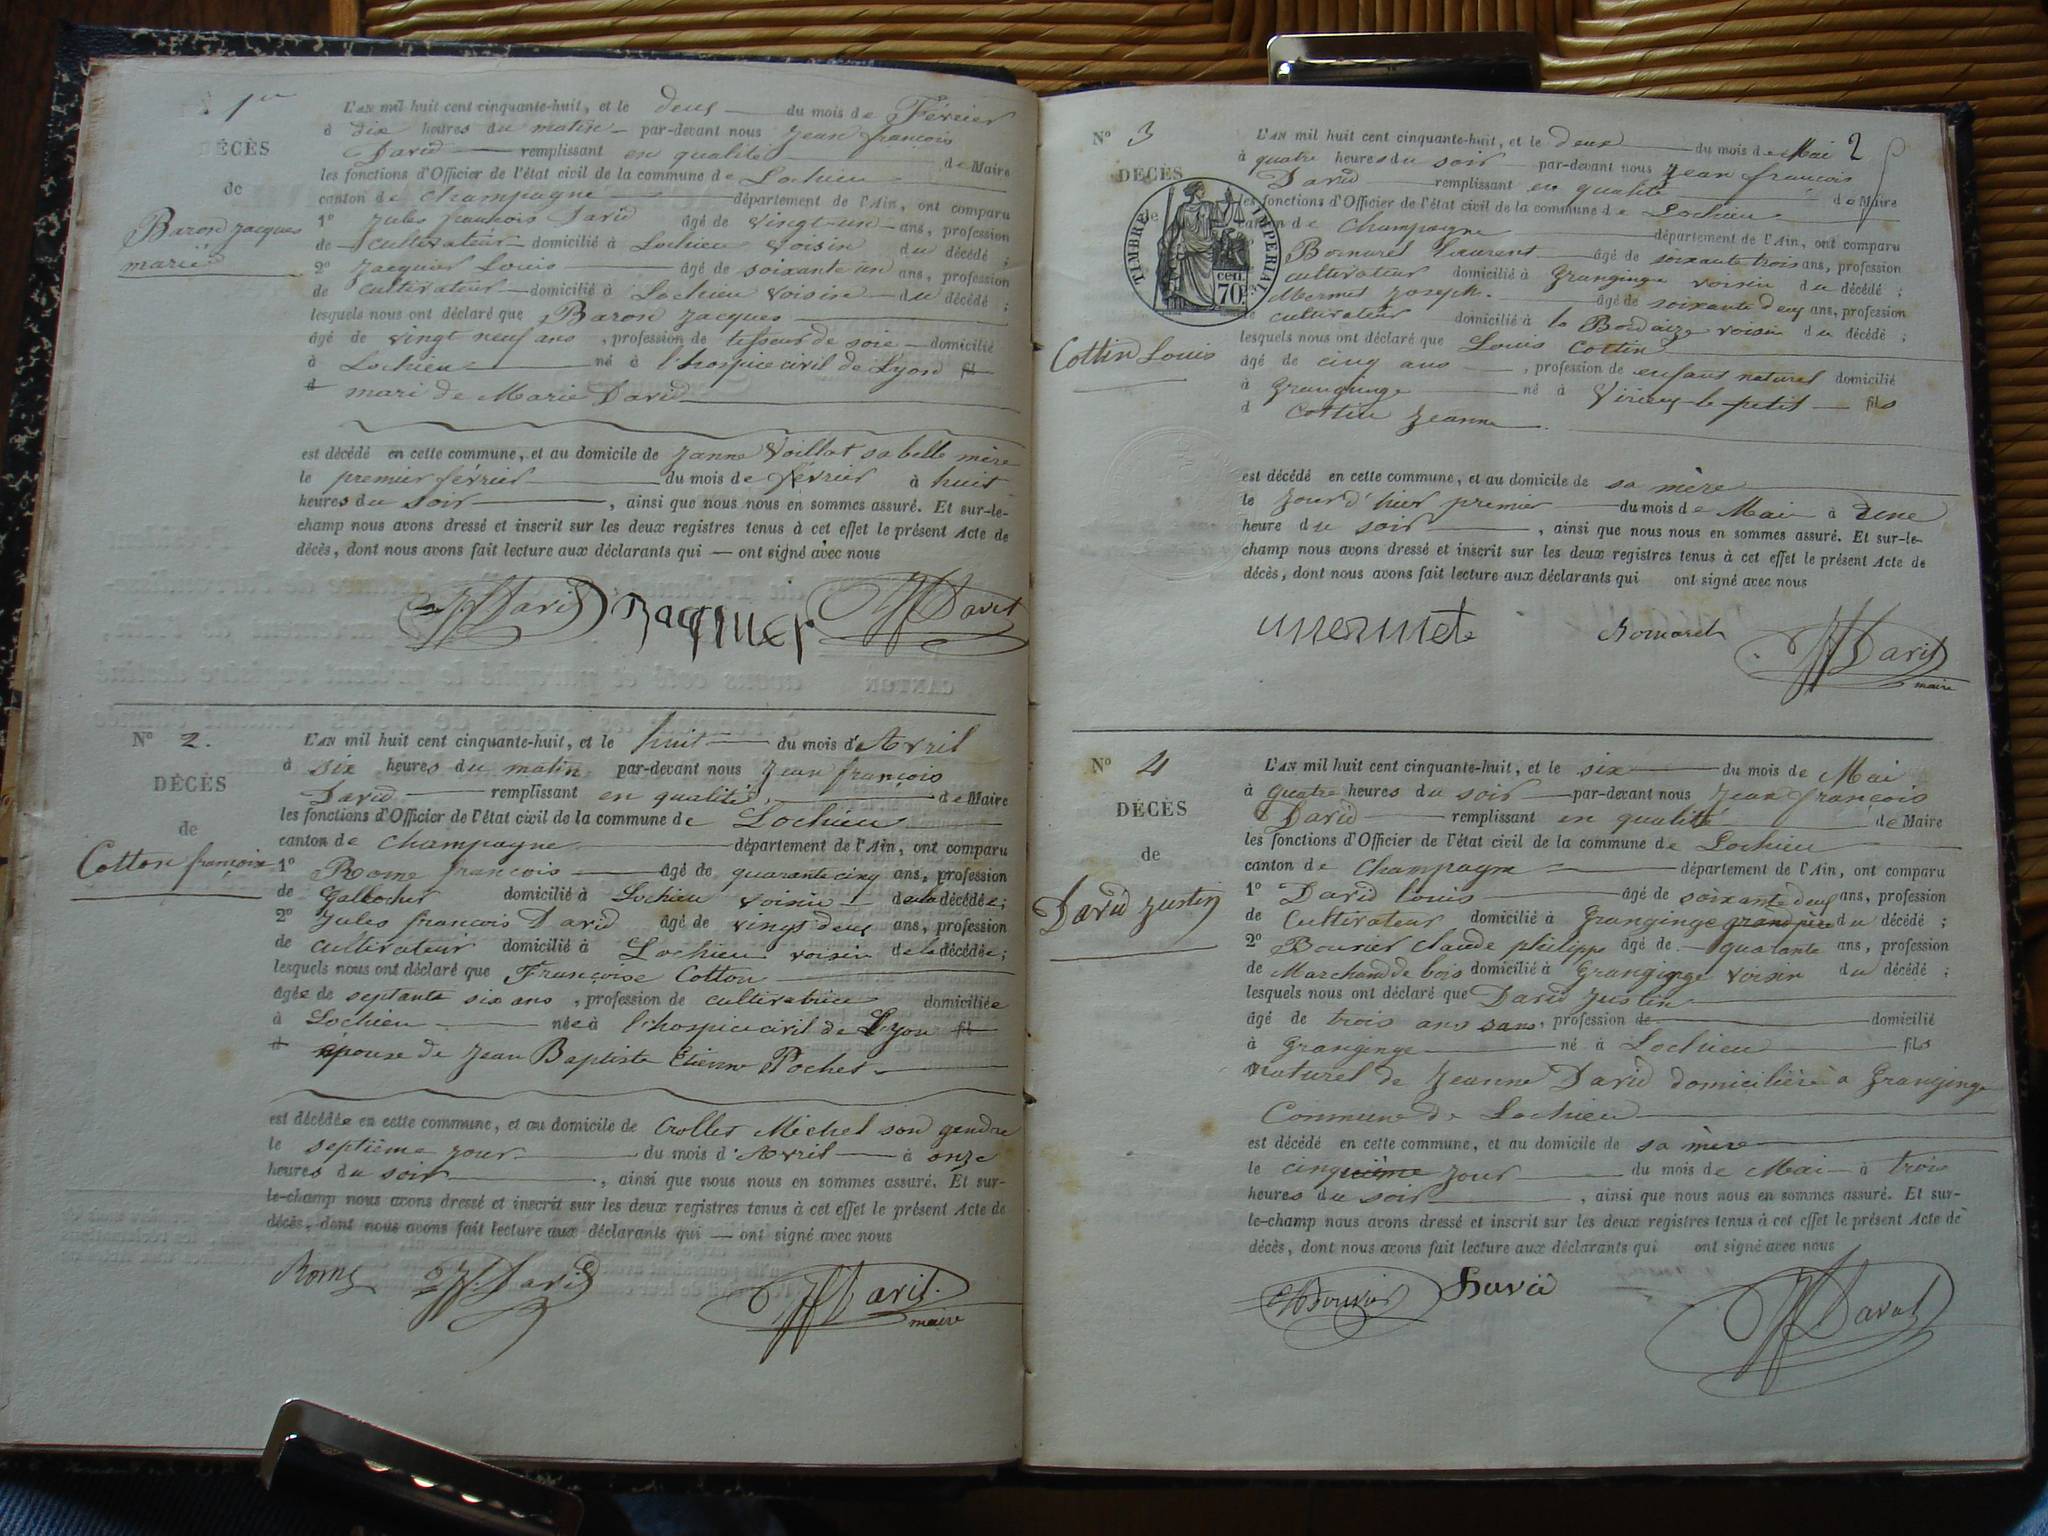 1er
DÉCÈS
de
Baron Jacques
marié
L'AN mil huit cent cinquante-huit, et le deux du mois de Février
à dix heures du matin par-devant nous Jean françois
David remplissant en qualité de Maire
les fonctions d'Officier de l'état civil de la commune de Lochieu
canton de Champagne département de l'Ain, ont comparu
1º Jules françois David âgé de vingt-un ans, profession
de cultivateur domicilié à Lochieu voisin du décédé ;
2º Jacquier Louis âgé de soixante un ans, profession
de cultivateur domicilié à Lochieu voisin du décédé ;
lesquels nous ont déclaré que Baron Jacques
âgé de vingt neuf ans, profession de tisseur de soie domicilié
à Lochieu né à l'hospice civil de Lyon fil
d mari de Marie David
est décédé en cette commune, et au domicile de Janne Voillat sa belle mère
le premier février du mois de février à huit
heures du soir, ainsi que nous nous en sommes assuré. Et sur-le-
champ nous avons dressé et inscrit sur les deux registres tenus à cet effet le présent Acte de
décès, dont nous avons fait lecture aux déclarants qui — ont signé avec nous
JF David Jacquier JF David
Nº 2.
DÉCÈS
de
Cotton françoise
L'AN mil huit cent cinquante-huit, et le huit du mois d'Avril
à six heures du matin par-devant nous Jean françois
David remplissant en qualité de Maire
les fonctions d'Officier de l'état civil de la commune de Lochieu
canton de Champagne département de l'Ain, ont comparu
1º Rome françois âgé de quarante cinq ans, profession
de Gallocher domicilié à Lochieu voisin de la décédée;
2º Jules françois David âgé de vingt deux ans, profession
de cultivateur domicilié à Lochieu voisin de la décédée;
lesquels nous ont déclaré que Françoise Cotton
âgée de septante six ans, profession de cultivatrice domiciliée
à Lochieu née à l'hospice civil de Lyon fil
d epouse de Jean Baptiste Etienne Pochet
est décédée en cette commune, et au domicile de Crollet Michel son gendre
le septième jour du mois d'Avril à onze
heures du soir, ainsi que nous nous en sommes assuré. Et sur-
le-champ nous avons dressé et inscrit sur les deux registres tenus à cet effet le présent Acte de
décès, dont nous avons fait lecture aux déclarants qui — ont signé avec nous
Rome JF David JF David
maire
2
Nº 3
DÉCÈS
de
Cottin Louis
TIMBRE IMPERIAL
70 cen.
L'AN mil huit cent cinquante-huit, et le deux du mois de Mai
à quatre heures du soir par-devant nous Jean françois
David remplissant en qualité de Maire
les fonctions d'Officier de l'état civil de la commune de Lochieu
canton de Champagne département de l'Ain, ont comparu
Bornarel Laurent âgé de soixante trois ans, profession
cultivateur domicilié à Granginge voisin du décédé ;
Mermet Joseph âgé de soixante deux ans, profession
cultivateur domicilié à la voisin du décédé ;
lesquels nous ont déclaré que Louis Cottin
âgé de cinq ans, profession de enfant naturel domicilié
à Granginge né à Virieu-le-petit fils
d Cottin Jeanne
est décédé en cette commune, et au domicile de sa mère
le jour d'hier premier du mois de Mai à une
heure du soir, ainsi que nous nous en sommes assuré. Et sur-le-
champ nous avons dressé et inscrit sur les deux registres tenus à cet effet le présent Acte de
décès, dont nous avons fait lecture aux déclarants qui ont signé avec nous
mermet Bornarel JF David
maire
Nº 4
DÉCÈS
de
David Justin
L'AN mil huit cent cinquante-huit, et le six du mois de Mai
à quatre heures du soir par-devant nous Jean françois
David remplissant en qualité de Maire
les fonctions d'Officier de l'état civil de la commune de Lochieu
canton de Champagne département de l'Ain, ont comparu
1º David Louis âgé de soixante deux ans, profession
de Cultivateur domicilié à Granginge grand père du décédé ;
2º Bouvier Claude philippe âgé de quarante ans, profession
de Marchand de bois domicilié à Granginge voisin du décédé ;
lesquels nous ont déclaré que David Justin
âgé de trois ans sans, profession de domicilié
à Granginge né à Lochieu fils
naturel de Jeanne David domicilière a Granginge
Commune de Lochieu
est décédé en cette commune, et au domicile de sa mère
le cinquième jour du mois de Mai à trois
heures du soir, ainsi que nous nous en sommes assuré. Et sur-
le-champ nous avons dressé et inscrit sur les deux registres tenus à cet effet le présent Acte de
décès, dont nous avons fait lecture aux déclarants qui ont signé avec nous
Bouvier David JF David